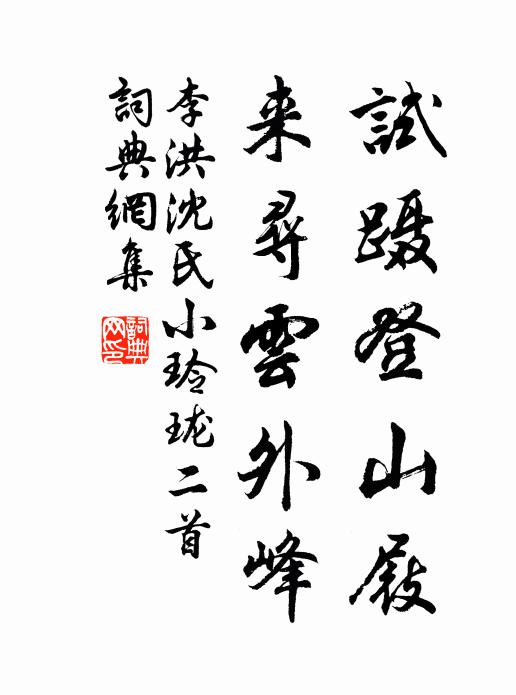 試蹑登山屐
来尋雲外峰
李洪沈氏小玲珑二首
詞典網集
詞典网印